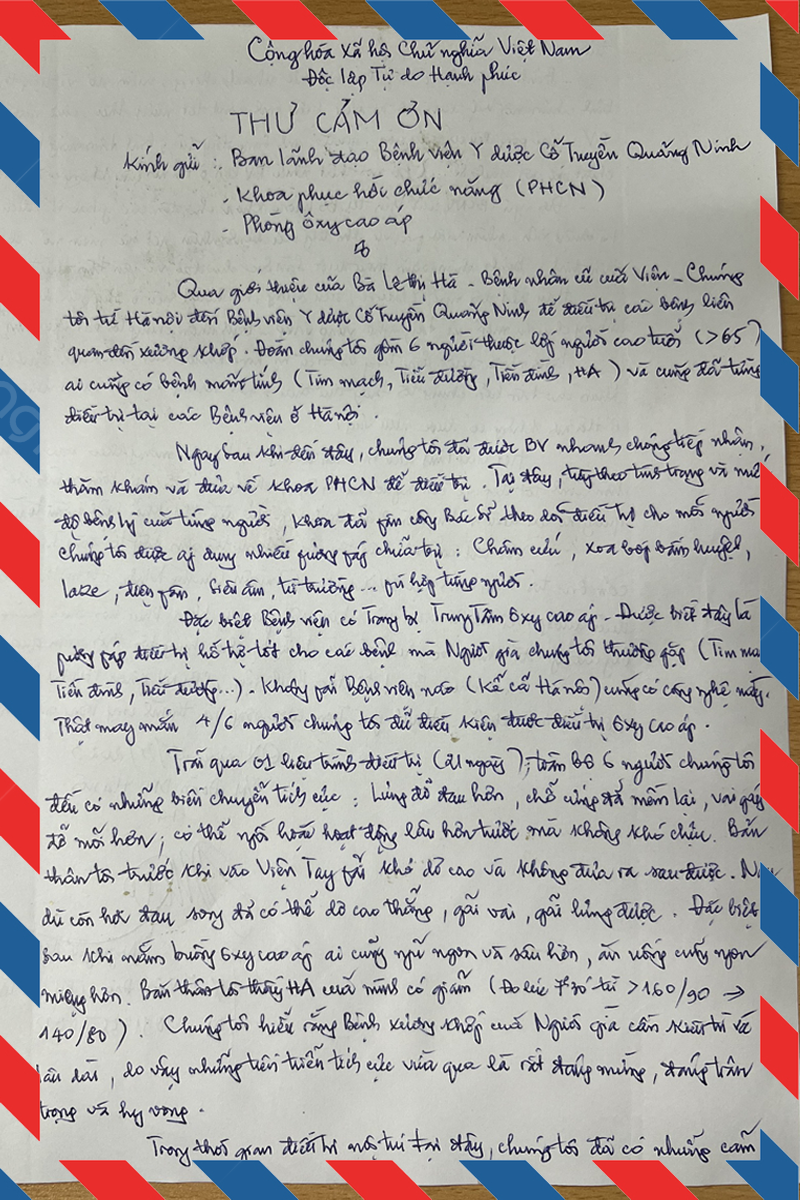 Cộng hòa Xã hội Chủ nghĩa Việt Nam
Độc lập Tự do Hạnh phúc
THƯ CẢM ƠN
Kính gửi : Ban lãnh đạo Bệnh viện Y dược Cổ Truyền Quảng Ninh
- Khoa phục hồi chức năng (PHCN)
- Phòng Ôxy cao áp
Qua giới thiệu của Bà Lê Thị Hà - Bệnh nhân cũ của Viện - Chúng
tôi từ Hà Nội đến Bệnh viện Y dược Cổ Truyền Quảng Ninh để điều trị các bệnh liên
quan đến xương khớp. Đoàn chúng tôi gồm 6 người thuộc lớp người cao tuổi (>65)
ai cũng có bệnh mãn tính (Tim mạch, Tiểu đường, Tiền đình, HA) và cũng đã từng
điều trị tại các Bệnh viện ở Hà Nội.
Ngay sau khi đến đây, chúng tôi đã được BV nhanh chóng tiếp nhận,
thăm khám và đưa về khoa PHCN để điều trị. Tại đây, tùy theo tình trạng và mức
độ bệnh lý của từng người, khoa đã fân công Bác Sĩ theo dõi điều trị cho mỗi người
chúng tôi được áp dụng nhiều fương fáp chữa trị : Châm cứu, xoa bóp bấm huyệt,
laze, điện fân, siêu âm, từ trường ... fù hợp từng người.
Đặc biệt Bệnh viện có Trang bị Trung Tâm Ôxy cao áp - Được biết đây là
fương fáp điều trị hỗ trợ tốt cho các bệnh mà Người già chúng tôi thường gặp (Tim mạ
Tiền đình, Tiểu đường...). Không fải Bệnh viện nào (Kể cả Hà Nội) cũng có công nghệ này.
Thật may mắn 4/6 người chúng tôi đủ điều kiện được điều trị Ôxy cao áp.
Trải qua 01 liệu trình điều trị (21 ngày), toàn bộ 6 người chúng tôi
đều có những biến chuyển tích cực : Lưng đỡ đau hơn, chỗ cứng đã mềm lại, vai gáy
đỡ mỏi hơn; có thể ngồi hoặc hoạt động lâu hơn trước mà không khó chịu. Bản
thân tôi trước khi vào Viện Tay fải khó dơ cao và không đưa ra sau được. Nay
dù còn hơi đau song đã có thể dơ cao thẳng, gãi vai, gãi lưng được. Đặc biệt
sau khi nằm buồng Ôxy cao áp ai cũng ngủ ngon và sâu hơn, ăn uống cũng ngon
miệng hơn. Bản thân tôi thấy HA của mình có giảm (Đo lúc 7h30 từ >160/90 →
140/80). Chúng tôi hiểu rằng Bệnh xương khớp của Người già cần kiên trì và
lâu dài, do vậy những tiến triển tích cực vừa qua là rất đáng mừng, đáng trân
trọng và hy vọng.
Trong thời gian điều trị nội trú tại đây, chúng tôi đã có những cảm